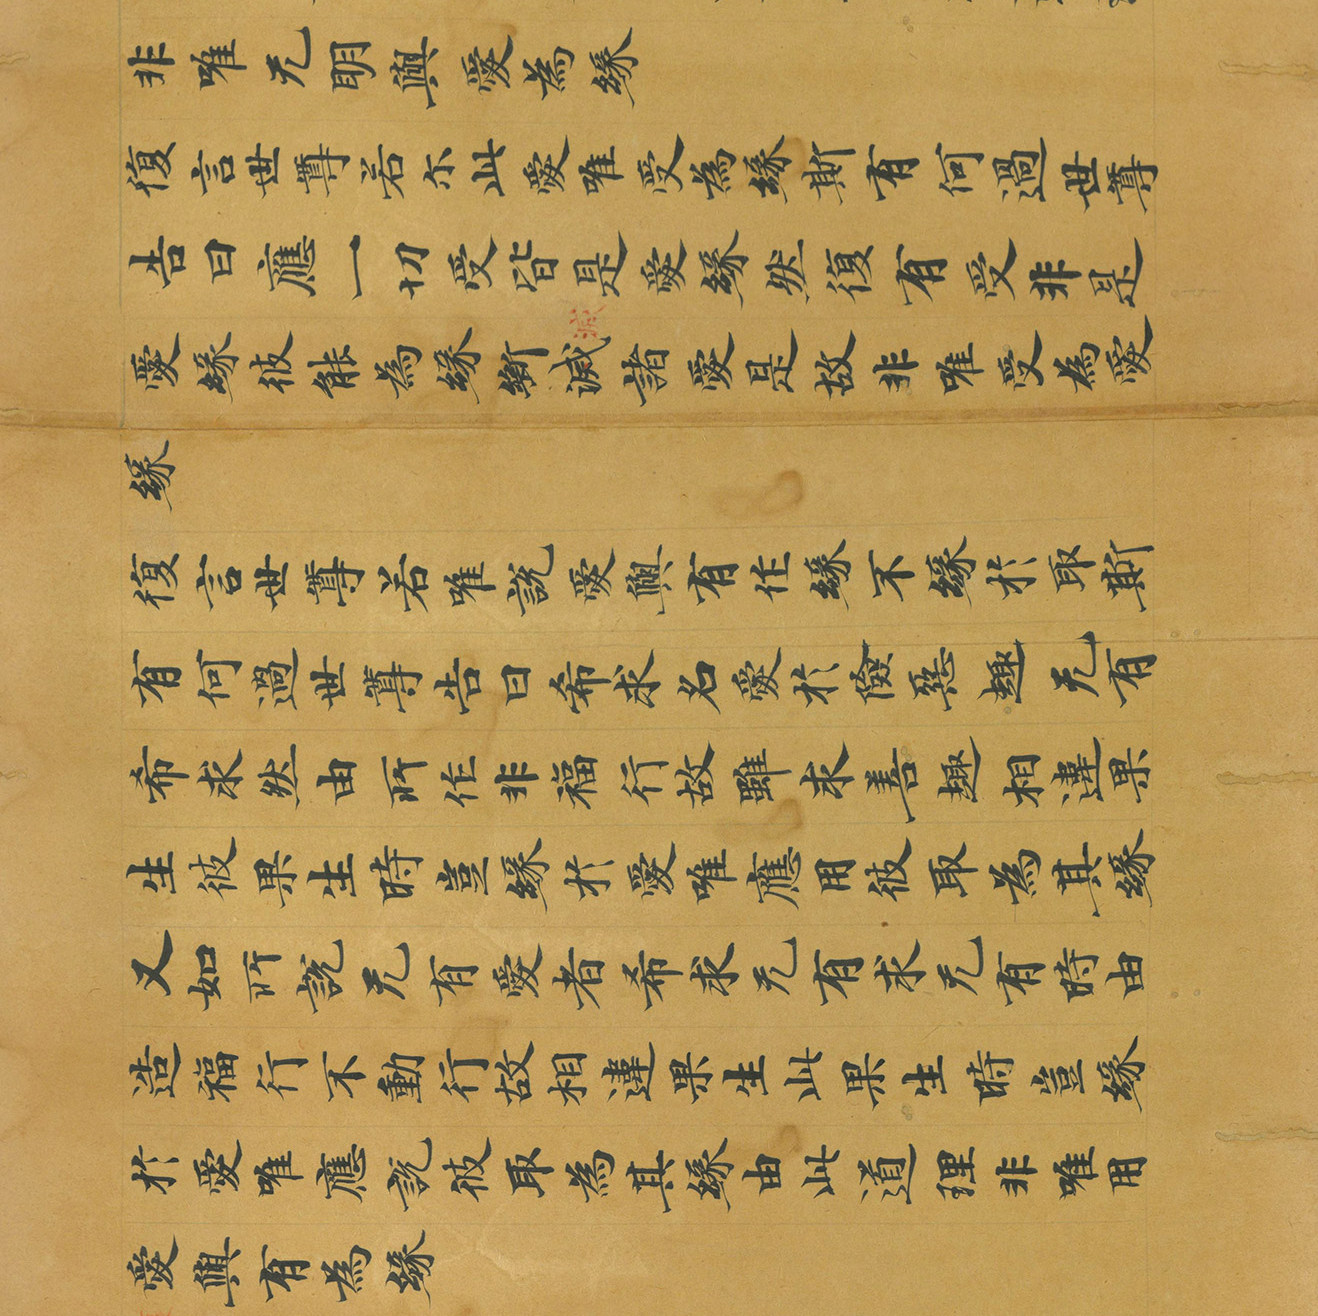 非唯无明與愛為緣
復言世尊若尒此愛唯受為緣斯有何過世尊
告曰應一切受皆是愛緣然復有受非是
滅
愛緣彼能為緣斷滅諸愛是故非唯受為愛
緣
復言世尊若唯說愛與有作緣不緣於取斯
有何過世尊告曰希求名愛於險惡趣无有
希求然由所作非福行故雖求善趣相違果
生彼果生時豈緣於愛唯應用彼取為其緣
又如所說无有愛者希求无有求无有時由
造福行不動行故相違果生此果生時豈緣
於愛唯應說彼取為其緣由此道理非唯用
愛與有為緣